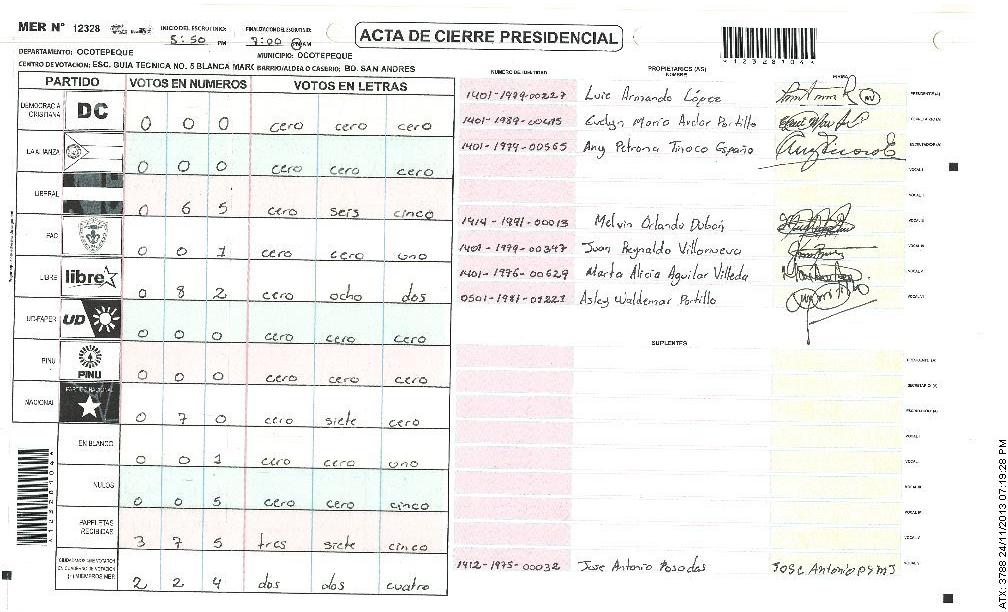 MER N° 12328 INICIO DEL ESCRUTINIO: FINALIZACION DEL ESCRUTINIO:
5:50 PM 7:00 PM AM
ACTA DE CIERRE PRESIDENCIAL
*12328104*
DEPARTAMENTO: OCOTEPEQUE MUNICIPIO: OCOTEPEQUE
CENTRO DE VOTACION: ESC. GUIA TECNICA NO. 5 BLANCA MARG BARRIO/ALDEA O CASERIO: BO. SAN ANDRES
PARTIDO VOTOS EN NUMEROS VOTOS EN LETRAS
DEMOCRACIA CRISTIANA DC 0 0 0 cero cero cero
LA ALIANZA 0 0 0 cero cero cero
LIBERAL 0 6 5 cero seis cinco
PAC 0 0 1 cero cero uno
LIBRE libre 0 8 2 cero ocho dos
UD-FAPER UD 0 0 0 cero cero cero
PINU PINU 0 0 0 cero cero cero
NACIONAL PARTIDO NACIONAL 0 7 0 cero siete cero
EN BLANCO 0 0 1 cero cero uno
NULOS 0 0 5 cero cero cinco
PAPELETAS RECIBIDAS 3 7 5 tres siete cinco
CIUDADANOS QUE VOTARON EN CUADERNO DE VOTACION (+) MIEMBROS MER 2 2 4 dos dos cuatro
NUMERO DE IDENTIDAD PROPIETARIOS (AS) NOMBRE FIRMA
1401-1979-00227 Luis Armando López PRESIDENTE (A)
1401-1989-00415 Evelyn Maria Ardor Portillo SECRETARIO (A)
1401-1979-00565 Any Petrona Tinoco España ESCRUTADOR (A)
VOCAL I
VOCAL II
1414-1991-00013 Melvin Orlando Dubón VOCAL III
1401-1979-00347 Juan Reynaldo Villanueva VOCAL IV
1401-1976-00629 Marta Alicia Aguilar Villeda VOCAL V
0501-1981-01221 Asley Waldemar Portillo VOCAL VI
SUPLENTES
PRESIDENTE (A)
SECRETARIO (A)
ESCRUTADOR (A)
VOCAL I
VOCAL II
VOCAL III
VOCAL IV
VOCAL V
1412-1975-00032 Jose Antonio Posadas Jose Antonio P S M J
*12328104*
ATX: 3788 24/11/2013 07:19:28 PM